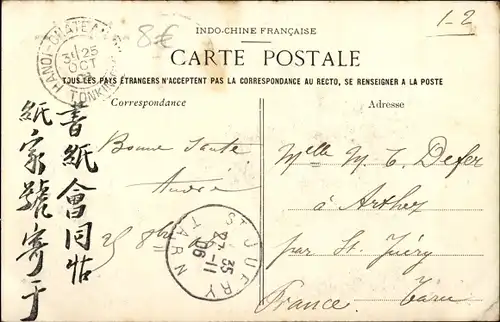 1-2
8€
INDO-CHINE FRANÇAISE
CARTE POSTALE
TOUS LES PAYS ÉTRANGERS N'ACCEPTENT PAS LA CORRESPONDANCE AU RECTO, SE RENSEIGNER A LA POSTE
HANOI-
TONKIN
25
OCT
Correspondance
Adresse
Bonne Santé
André
25 8bre
書紙會同帖
紙家號寄于
ST JUÉRY
TARN
35
-11
06
Mlle M. T. Defer
à Arthez
par St. Juéry
France. Tarn